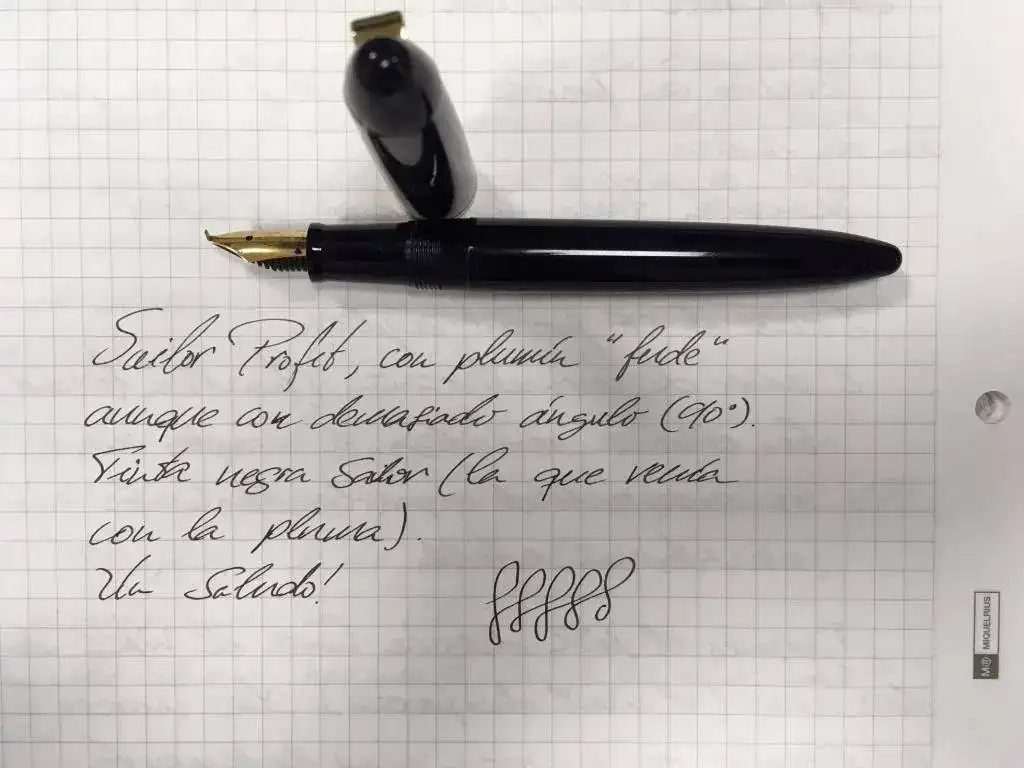 Sailor Profit, con plumín "fude"
aunque con demasiado ángulo (90°).
Tinta negra Sailor (la que venía
con la pluma).
Un Saludo!
M@ MIQUELRIUS